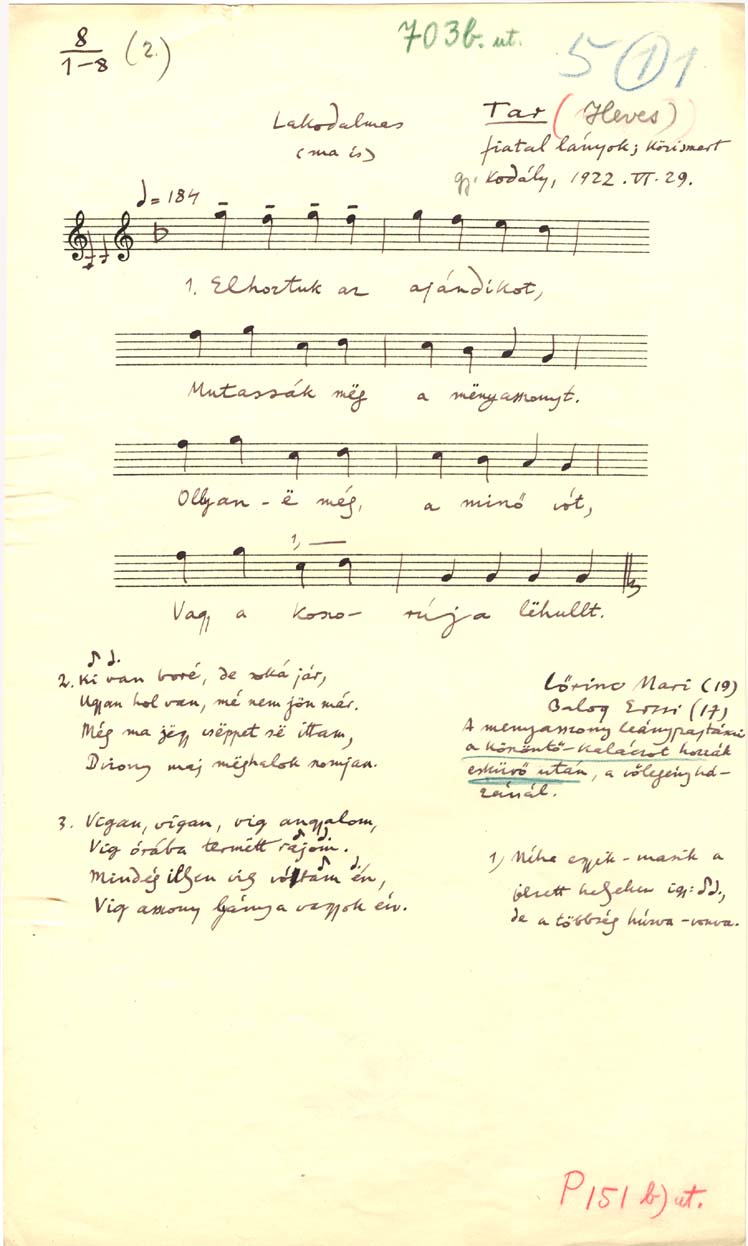 8
1-8 (2.)
703b. ut.
5 1 1
Lakodalmas
(ma is)
Tar (Heves)
fiatal lányok; közismert
gy. Kodály, 1922. VI. 29.
= 184
1. Elhoztuk az ajándikot,
Mutassák mëg a mënyasszonyt.
Ollyan-ë még, a minő vót,
1,
Vagy a koszo- rúja lëhullt.
2. Ki van boré, de soká jár,
Ugyan hol van, mé nem jön már.
Még ma jëgy csëppet së ittam,
Bizony maj mëghalok szomjan.
3. Vigan, vigan, vig angyalom,
Vig órába termëtt rajom.
Mindég illyen vig vótam én,
Vig asszony lyánya vagyok én.
Lőrinc Mari (19)
Balog Erzsi (17)
A menyasszony leánypajtásai
a köszöntő-kalácsot hozzák
esküvő után, a vőlegény há-
zánál.
1) Néha egyik-másik a
jelzett helyeken így:
de a többség húzva-vonva.
P 151 b) ut.